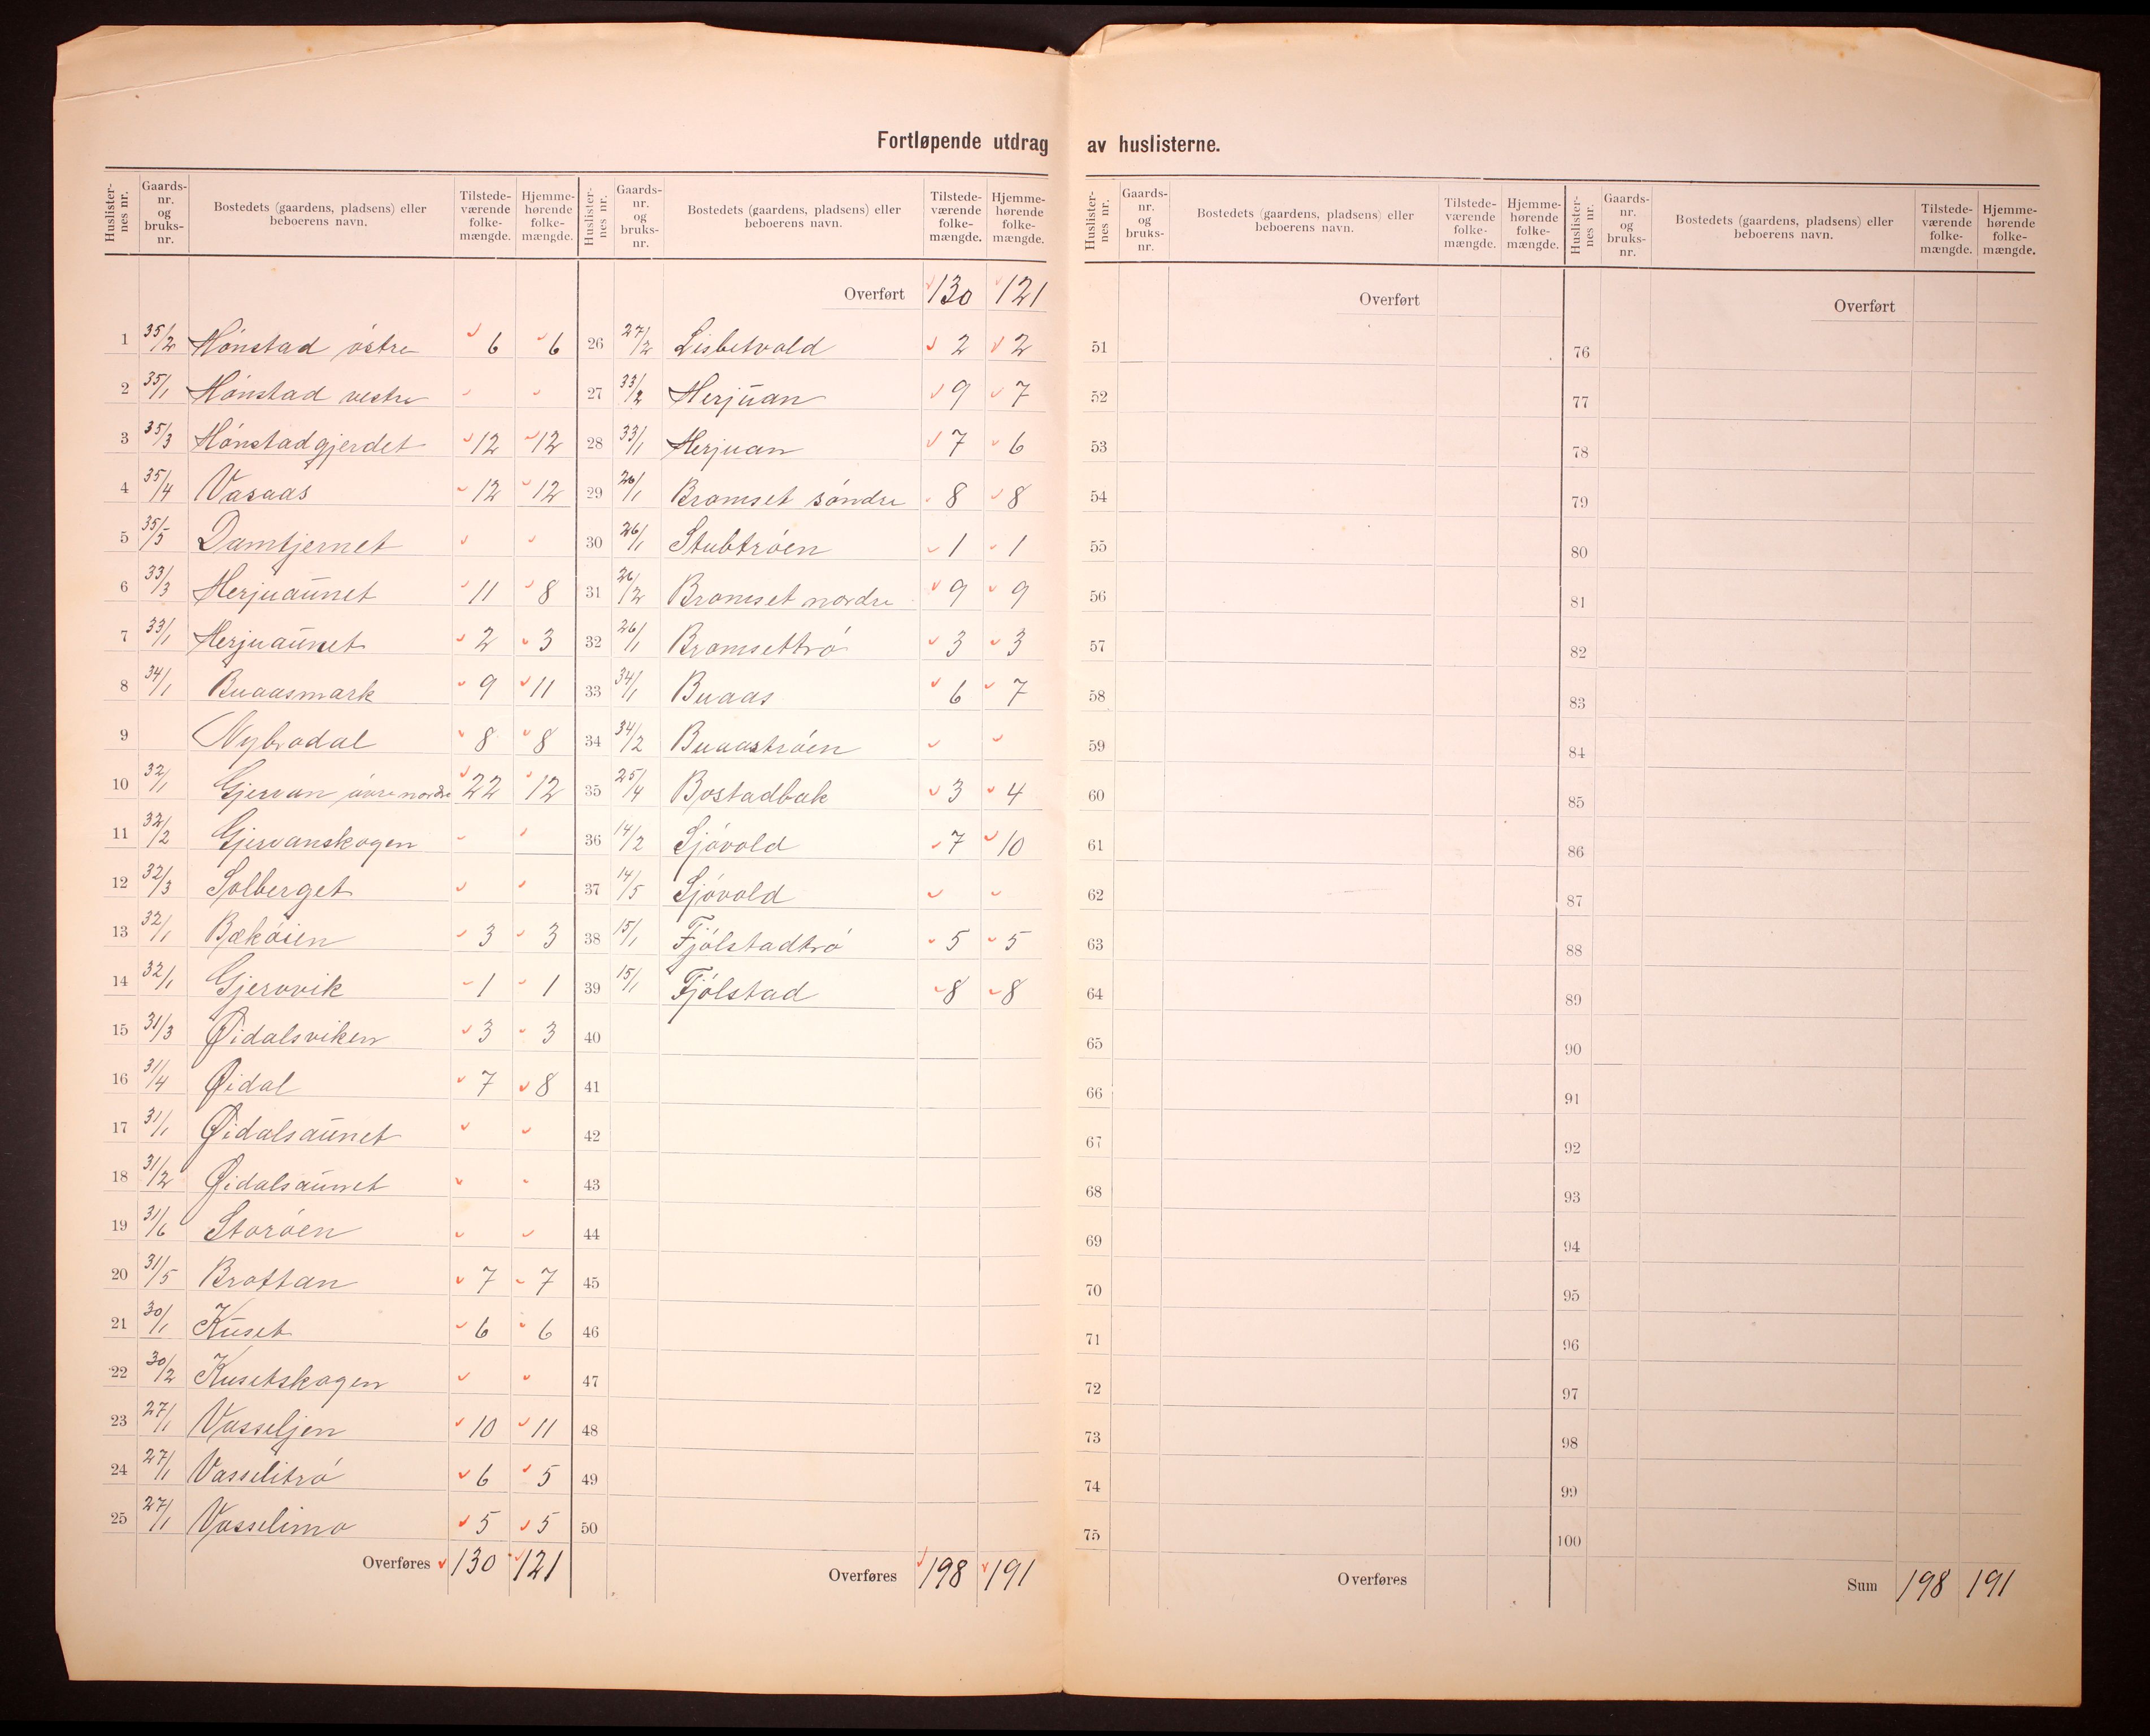 Fortløpende utdrag av huslisterne.
Huslister-nes nr. Gaards-nr. og bruks-nr. Bostedets (gaardens, pladsens) eller beboerens navn. Tilstede-værende folke-mængde. Hjemme-hørende folke-mængde.
1 35/2 Hönstad östre 6 6
2 35/1 Hönstad vestre
3 35/3 Hönstadgjerdet 12 12
4 35/4 Vasaas 12 12
5 35/5 Damtjernet
6 33/3 Herjuaunet 11 8
7 33/1 Herjuaunet 2 3
8 34/1 Buaasmark 9 11
9 Nybrodal 8 8
10 32/1 Gjervan övre nordre 22 12
11 32/2 Gjervanskogen
12 32/3 Solberget
13 32/1 Bæköien 3 3
14 32/1 Gjervvik 1 1
15 31/3 Øidalsviken 3 3
16 31/4 Øidal 7 8
17 31/1 Øidalsaunet
18 31/2 Øidalsaunet
19 31/6 Storöen
20 31/5 Brattan 7 7
21 30/1 Kuset 6 6
22 30/2 Kusetskogen
23 27/1 Vasseljen 10 11
24 27/1 Vasselitrö 6 5
25 27/1 Vasselimo 5 5
Overføres 130 121
Huslister-nes nr. Gaards-nr. og bruks-nr. Bostedets (gaardens, pladsens) eller beboerens navn. Tilstede-værende folke-mængde. Hjemme-hørende folke-mængde.
Overført 130 121
26 27/2 Lisbetvald 2 2
27 33/2 Herjuan 9 7
28 33/1 Herjuan 7 6
29 26/1 Bromset söndre 8 8
30 26/1 Stubtröen 1 1
31 26/2 Bromset nordre 9 9
32 26/1 Bromsettrö 3 3
33 34/1 Buaas 6 7
34 34/2 Buaaströen
35 25/4 Bostadbak 3 4
36 14/2 Sjövold 7 10
37 14/5 Sjövold
38 15/1 Fjölstadtrö 5 5
39 15/1 Fjölstad 8 8
40
41
42
43
44
45
46
47
48
49
50
Overføres 198 191
Huslister-nes nr. Gaards-nr. og bruks-nr. Bostedets (gaardens, pladsens) eller beboerens navn. Tilstede-værende folke-mængde. Hjemme-hørende folke-mængde.
Overført
51
52
53
54
55
56
57
58
59
60
61
62
63
64
65
66
67
68
69
70
71
72
73
74
75
Overføres
Huslister-nes nr. Gaards-nr. og bruks-nr. Bostedets (gaardens, pladsens) eller beboerens navn. Tilstede-værende folke-mængde. Hjemme-hørende folke-mængde.
Overført
76
77
78
79
80
81
82
83
84
85
86
87
88
89
90
91
92
93
94
95
96
97
98
99
100
Sum 198 191